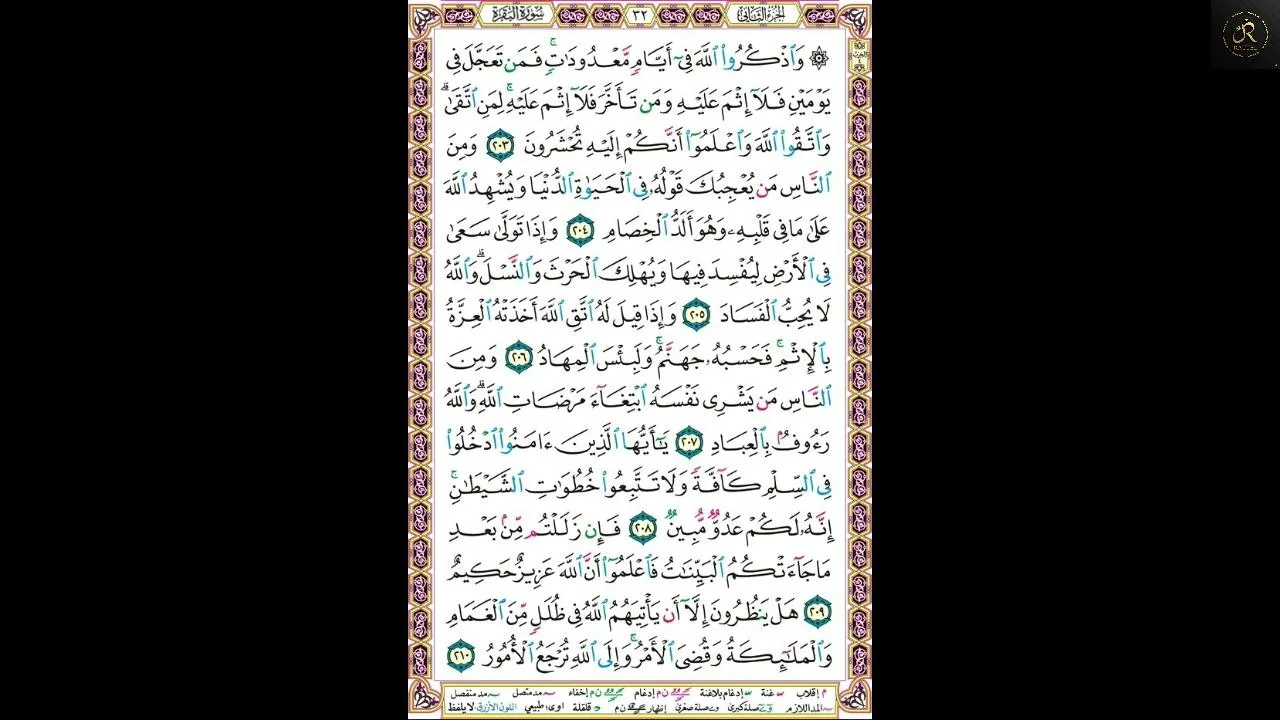 الجزء الثاني
٣٢
سورة البقرة
۞ وَٱذْكُرُوا۟ ٱللَّهَ فِىٓ أَيَّامٍ مَّعْدُودَٰتٍ ۚ فَمَن تَعَجَّلَ فِى
يَوْمَيْنِ فَلَآ إِثْمَ عَلَيْهِ وَمَن تَأَخَّرَ فَلَآ إِثْمَ عَلَيْهِ ۚ لِمَنِ ٱتَّقَىٰ ۗ
وَٱتَّقُوا۟ ٱللَّهَ وَٱعْلَمُوٓا۟ أَنَّكُمْ إِلَيْهِ تُحْشَرُونَ ٢٠٣ وَمِنَ
ٱلنَّاسِ مَن يُعْجِبُكَ قَوْلُهُۥ فِى ٱلْحَيَوٰةِ ٱلدُّنْيَا وَيُشْهِدُ ٱللَّهَ
عَلَىٰ مَا فِى قَلْبِهِۦ وَهُوَ أَلَدُّ ٱلْخِصَامِ ٢٠٤ وَإِذَا تَوَلَّىٰ سَعَىٰ
فِى ٱلْأَرْضِ لِيُفْسِدَ فِيهَا وَيُهْلِكَ ٱلْحَرْثَ وَٱلنَّسْلَ ۗ وَٱللَّهُ
لَا يُحِبُّ ٱلْفَسَادَ ٢٠٥ وَإِذَا قِيلَ لَهُ ٱتَّقِ ٱللَّهَ أَخَذَتْهُ ٱلْعِزَّةُ
بِٱلْإِثْمِ ۚ فَحَسْبُهُۥ جَهَنَّمُ ۚ وَلَبِئْسَ ٱلْمِهَادُ ٢٠٦ وَمِنَ
ٱلنَّاسِ مَن يَشْرِى نَفْسَهُ ٱبْتِغَآءَ مَرْضَاتِ ٱللَّهِ ۗ وَٱللَّهُ
رَءُوفٌۢ بِٱلْعِبَادِ ٢٠٧ يَـٰٓأَيُّهَا ٱلَّذِينَ ءَامَنُوا۟ ٱدْخُلُوا۟
فِى ٱلسِّلْمِ كَآفَّةً وَلَا تَتَّبِعُوا۟ خُطُوَٰتِ ٱلشَّيْطَـٰنِ ۚ
إِنَّهُۥ لَكُمْ عَدُوٌّ مُّبِينٌ ٢٠٨ فَإِن زَلَلْتُم مِّنۢ بَعْدِ
مَا جَآءَتْكُمُ ٱلْبَيِّنَـٰتُ فَٱعْلَمُوٓا۟ أَنَّ ٱللَّهَ عَزِيزٌ حَكِيمٌ
٢٠٩ هَلْ يَنظُرُونَ إِلَّآ أَن يَأْتِيَهُمُ ٱللَّهُ فِى ظُلَلٍ مِّنَ ٱلْغَمَامِ
وَٱلْمَلَـٰٓئِكَةُ وَقُضِىَ ٱلْأَمْرُ ۚ وَإِلَى ٱللَّهِ تُرْجَعُ ٱلْأُمُورُ ٢١٠
م إقلاب غنة إدغام بلاغنة ن م إدغام ن م إخفاء مد متصل مد منفصل
المد اللازم صلة كبرى صلة صغرى إظهار ن م قلقلة طبيعي اللون الأزرق لا يلفظ